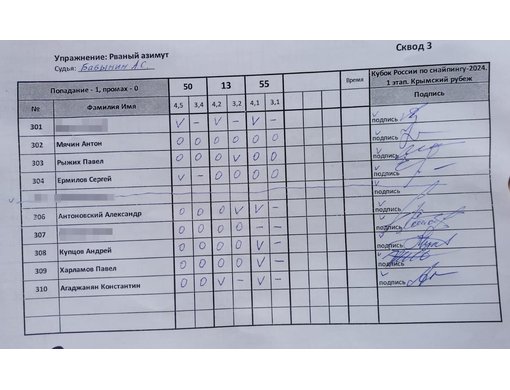 Сквод 3
Упражнение: Рваный азимут
Судья: Бабынин А.С.
Попадание - 1, промах - 0 50 13 55 Время Кубок России по снайпингу-2024. 1 этап. Крымский рубеж
№ Фамилия Имя 4,5 3,4 4,2 3,2 4,1 3,1 Подпись
301 V – V – V – подпись
302 Мячин Антон 0 0 0 0 0 0 подпись
303 Рыжих Павел 0 0 0 V 0 0 подпись
304 Ермилов Сергей V – 0 0 0 0 подпись
306 Антоновский Александр 0 0 0 V V – подпись
307 0 0 0 0 – – подпись
308 Купцов Андрей 0 0 0 0 V – подпись
309 Харламов Павел 0 0 0 0 V – подпись
310 Агаджанян Константин 0 0 V – V – подпись